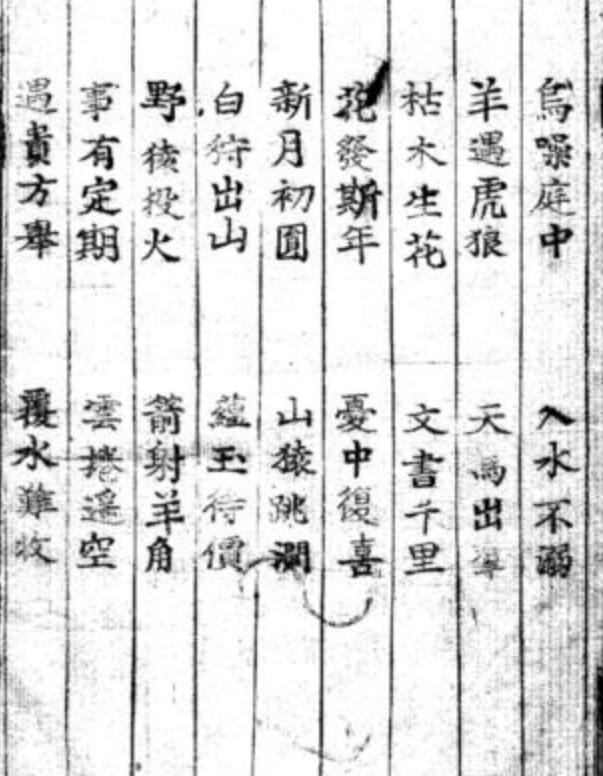 烏噪庭中 入水不溺
羊遇虎狼 天馬出
枯木生花 文書千里
花發斯年 憂中復喜
新月初圓 山猿跳澗
白狩出山 蘊玉待價
野猿投火 箭射羊角
事有定期 雲捲遥空
遇貴方舉 覆水難收